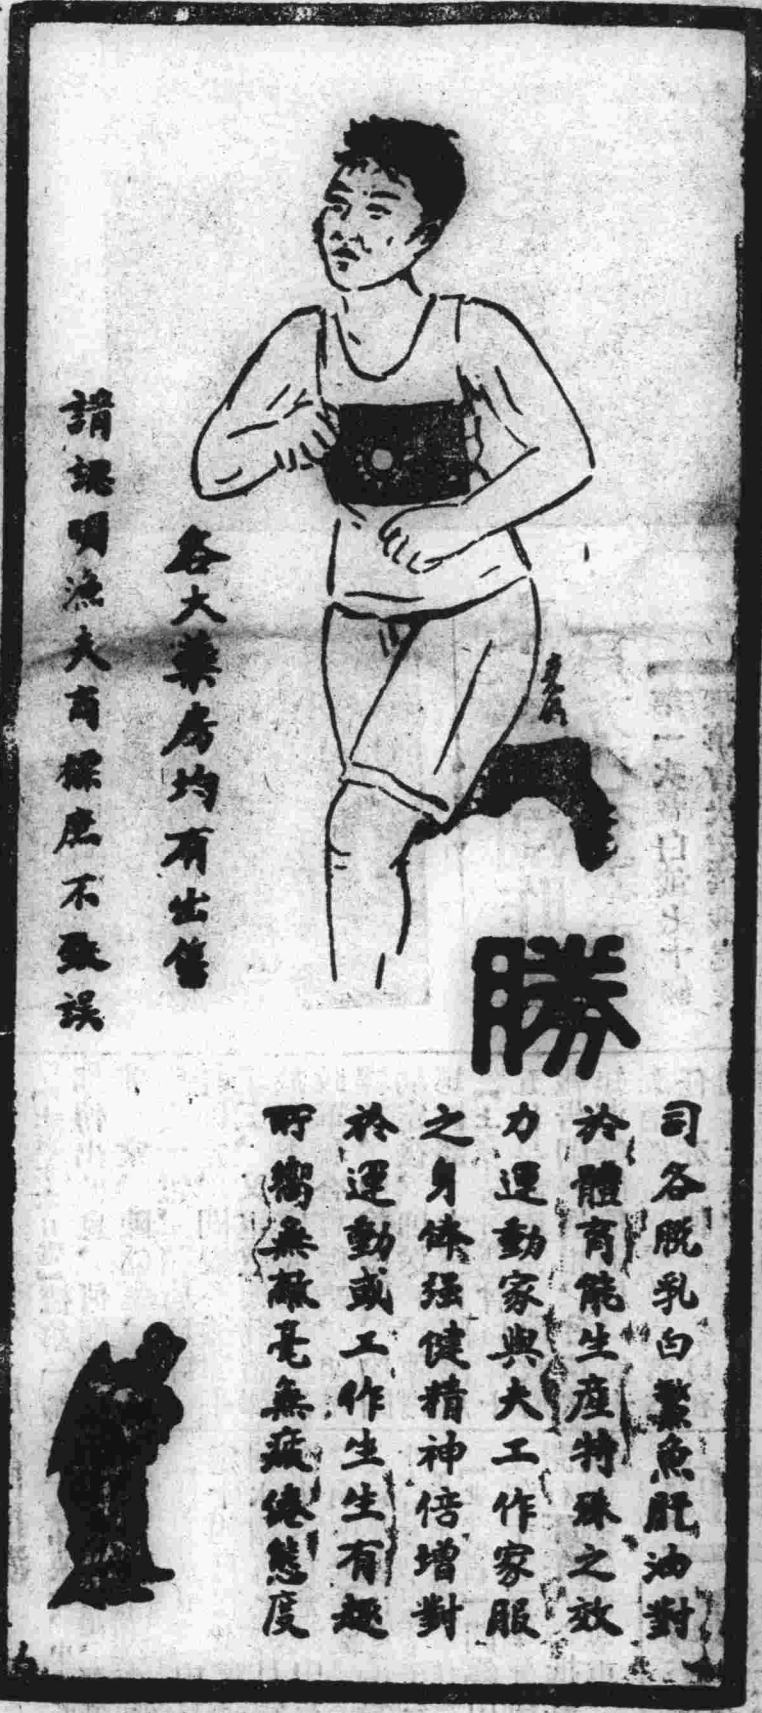 勝
司各脱乳白鰵魚肝油對
於體育能生產特殊之效
力運動家與大工作家服
之身体强健精神倍增對
於運動或工作生生有趣
所嚮無敵毫無疲倦態度
各大藥房均有出售
請認明漁夫商標庶不致誤